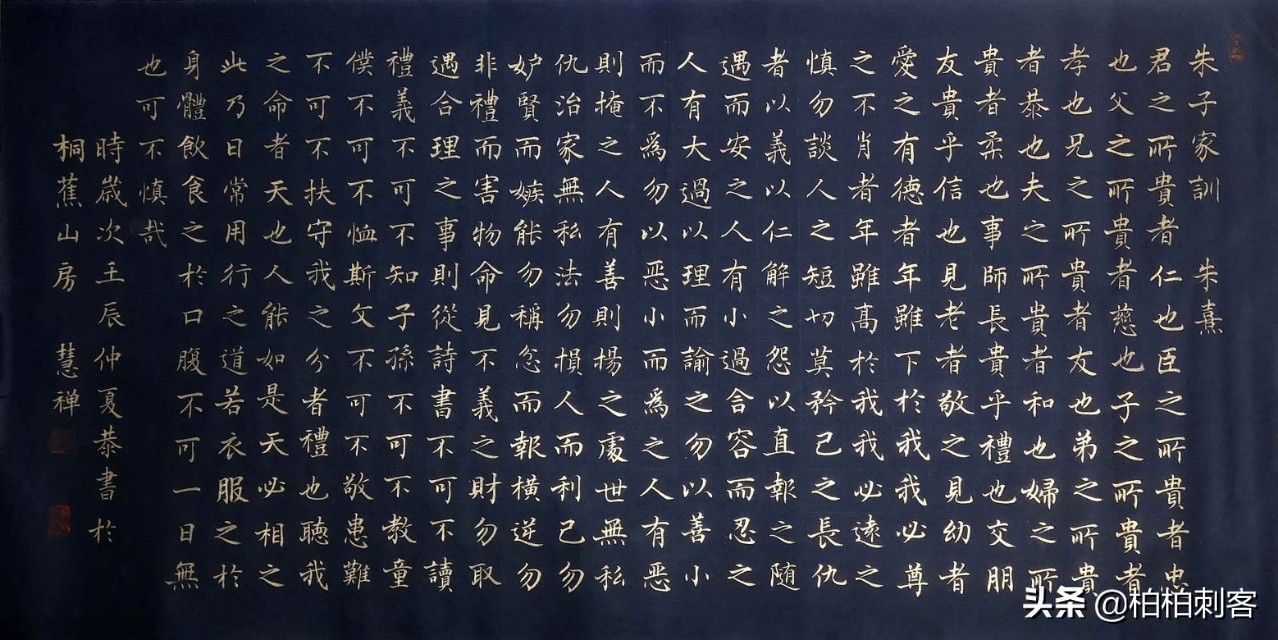 朱子家訓 朱熹
君之所貴者仁也臣之所貴者忠
也父之所貴者慈也子之所貴者
孝也兄之所貴者友也弟之所貴
者恭也夫之所貴者和也婦之所
貴者柔也事師長貴乎禮也交朋
友貴乎信也見老者敬之見幼者
愛之有德者年雖下於我我必尊
之不肖者年雖高於我我必遠之
慎勿談人之短切莫矜己之長仇
者以義以仁解之怨以直報之随
遇而安之人有小過含容而忍之
人有大過以理而諭之勿以善小
而不為勿以惡小而為之人有惡
則掩之人有善則揚之處世無私
仇治家無私法勿損人而利己勿
妒賢而嫉能勿稱忿而報橫逆勿
非禮而害物命見不義之財勿取
遇合理之事則從詩書不可不讀
禮義不可不知子孫不可不教童
僕不可不恤斯文不可不敬患難
不可不扶守我之分者禮也聽我
之命者天也人能如是天必相之
此乃日常用行之道若衣服之於
身體飲食之於口腹不可一日無
也可不慎哉
時歲次壬辰仲夏恭書於
桐蕉山房 慧禅
头条 @柏柏刺客